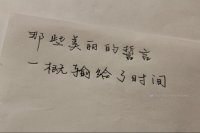 那些美丽的誓言
一概输给了时间